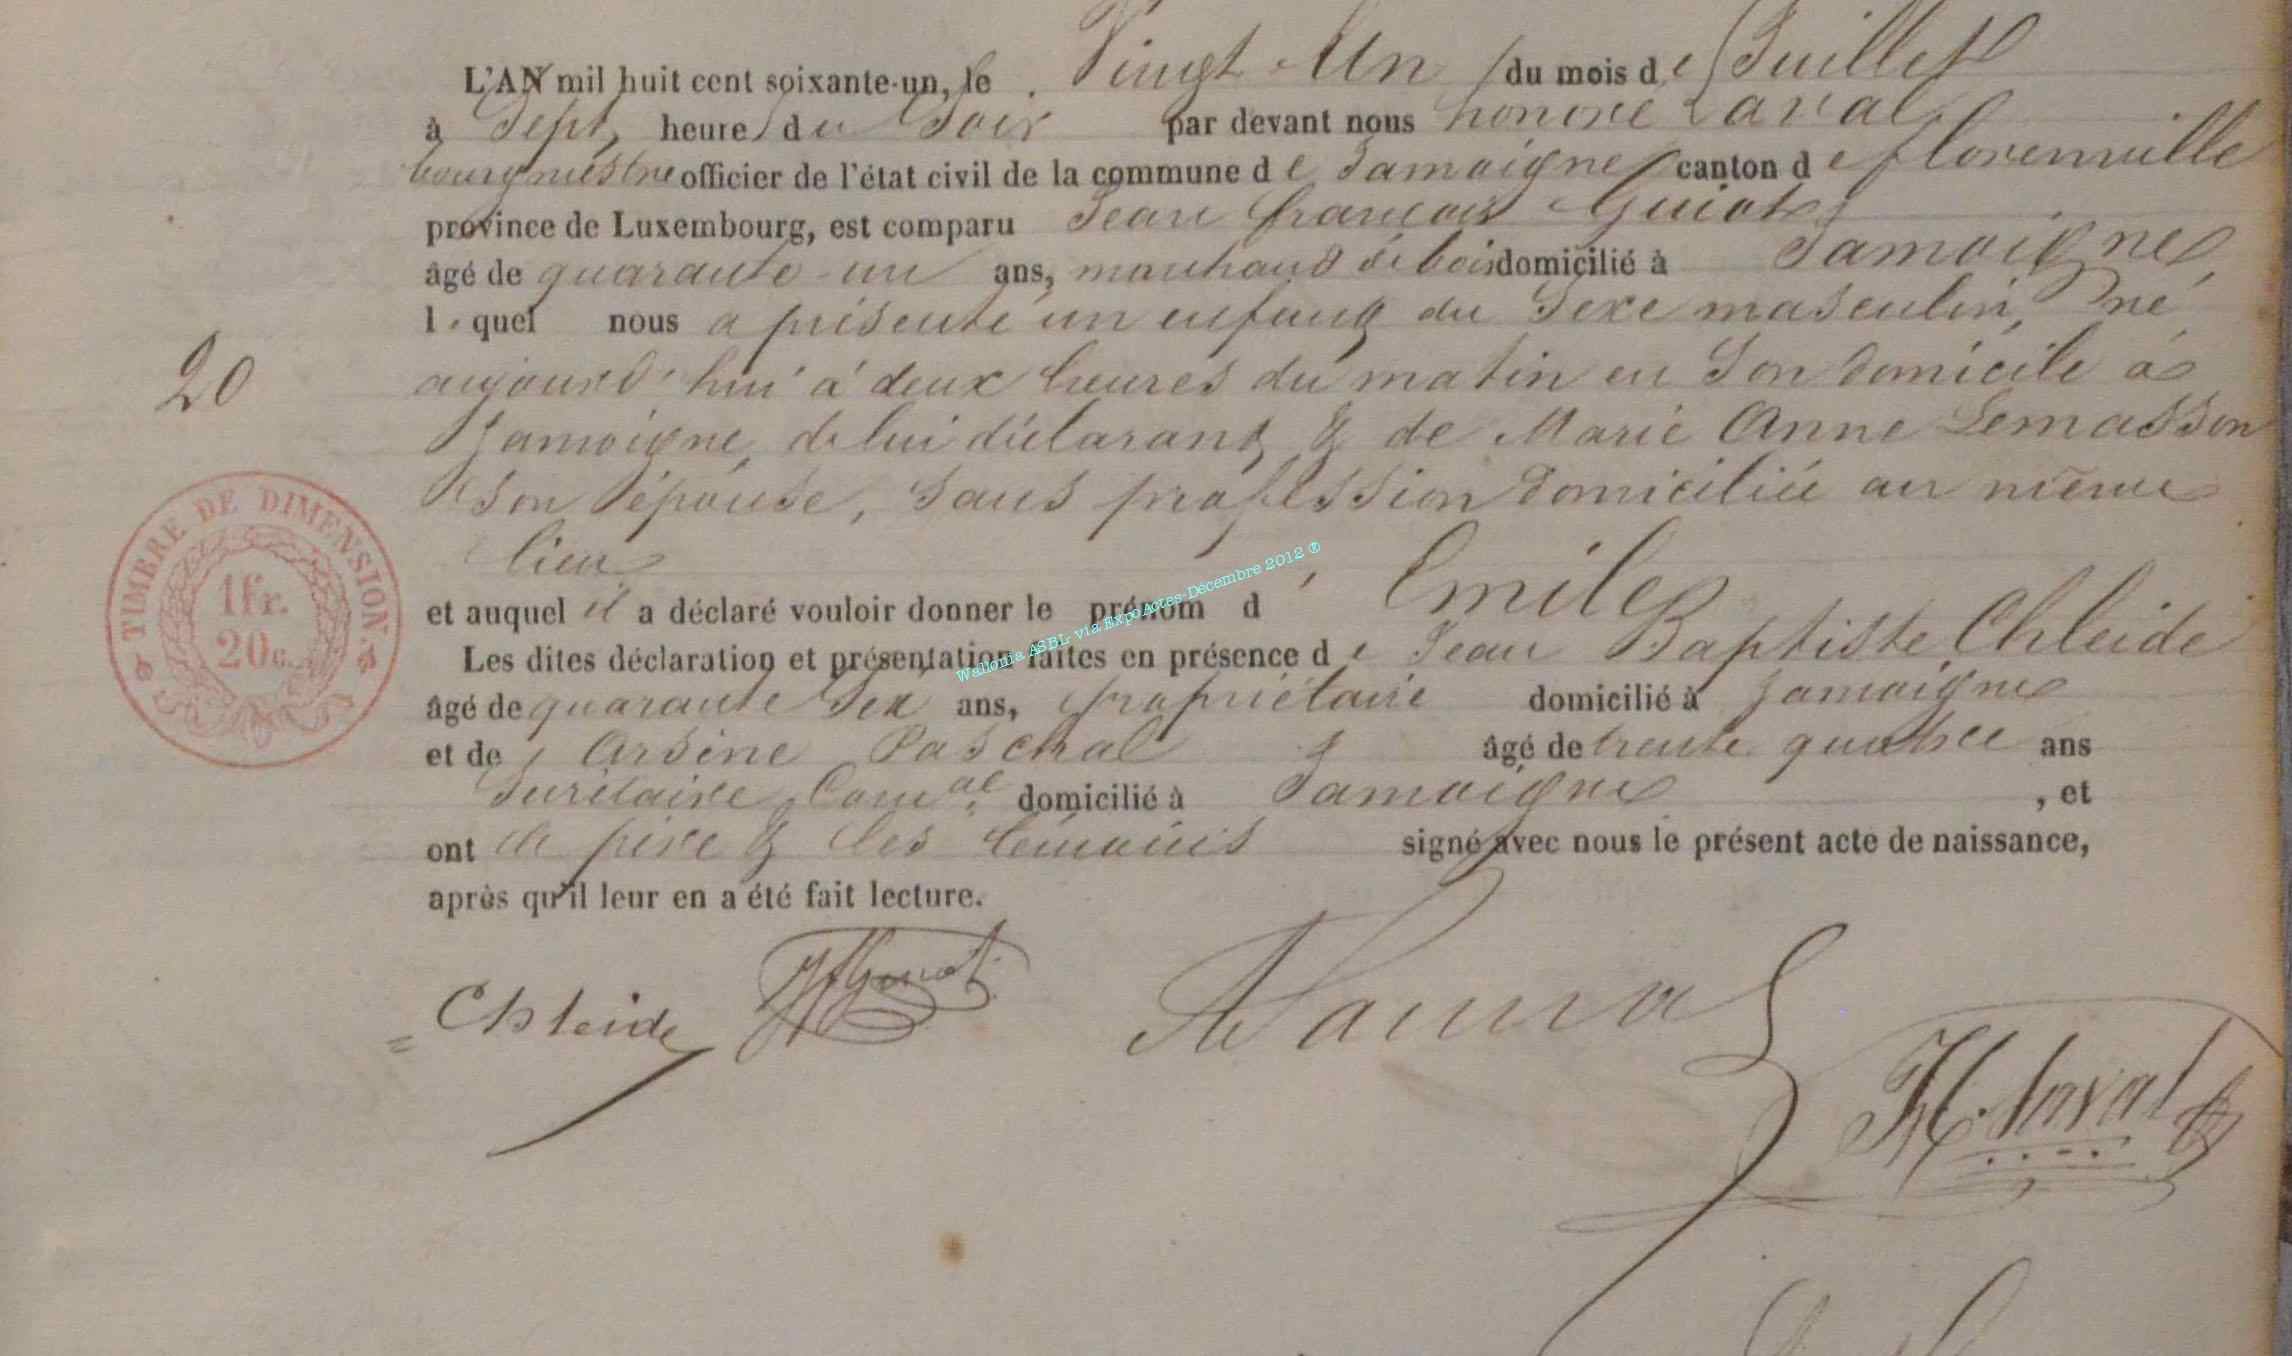 L'AN mil huit cent soixante-un, le Vingt-Un du mois de Juillet
à Sept heures du Soir par devant nous honoré Laval
bourgmestre officier de l'état civil de la commune de Jamoigne canton de florenville
province de Luxembourg, est comparu Jean françois Guiot
âgé de quarante-un ans, marchand de bois domicilié à Jamoigne
lequel nous a présenté un enfant du Sexe masculin, né
20
aujourd'hui à deux heures du matin en Son domicile à
Jamoigne, de lui déclarant & de Marie Anne Lemasson
Son épouse, Sans profession domiciliée au même
lieu
et auquel il a déclaré vouloir donner le prénom d'Emile
Les dites déclaration et présentation faites en présence de Jean Baptiste Chleide
âgé de quarante Six ans, propriétaire domicilié à Jamoigne
et de Arsène Paschal âgé de trente quatre ans
Secrétaire Comal domicilié à Jamoigne, et
ont le père & les témoins signé avec nous le présent acte de naissance,
après qu'il leur en a été fait lecture.
TIMBRE DE DIMENSION.
1fr.
20c.
Wallonia ASBL via ExpoActes-Décembre 2012 ®
Chleide JfGuiot
H. Laval